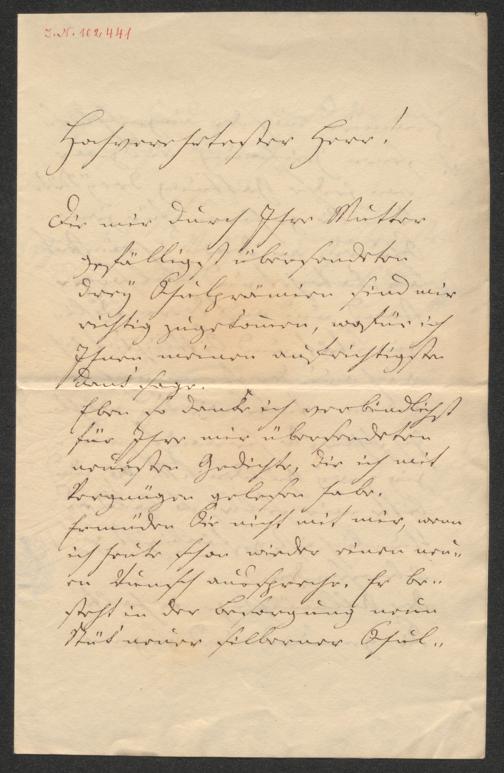 I. N. 102,441
Hochverehrtester Herr!
Die mir durch Ihre Mutter
gefälligst übersendeten
drey Schulprämien sind mir
richtig zugekommen, wofür ich
Ihnen meinen aufrichtigsten
Dank sage.
Eben so danke ich verbindlichst
für Ihre mir übersendeten
neuesten Gedichte, die ich mit
Vergnügen gelesen habe.
Ermüden Sie nicht mit mir, wenn
ich heute schon wieder einen neu-
en Wunsch ausspreche. Er be-
steht in der Besorgung neun
Stük neuer silberner Schul-